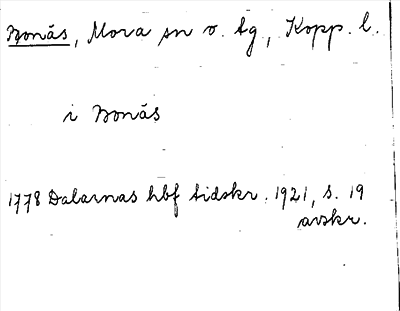 Bonäs, Mora sn o. tg, Kopp. l.
i Bonäs
1778 Dalarnas hbf tidskr. 1921, s. 19
avskr.